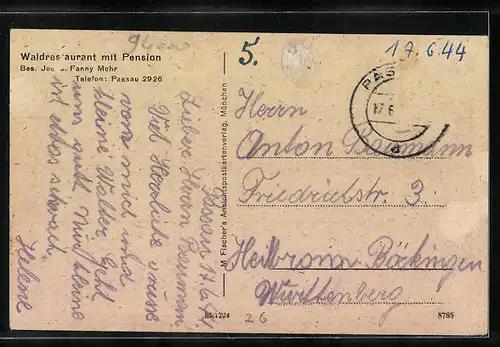 94000
Waldrestaurant mit Pension
Bes. Jos. u. Fanny Mohr
Telefon: Passau 2926
5.
17.6.44
PAS
17.6
Herrn
Anton Baumann
Friedrichstr. 3.
Heilbronn Böckingen
Württenberg
Passau 17.6.44
Lieber Herr Baumann,
Viel Herzliche Grüsse
von mir und
kleine Walter. Geht
uns gutt. Nur kleine
ist etwas schwach.
Helene
M. Fischer's Ansichtspostkartenverlag, München
26
8785